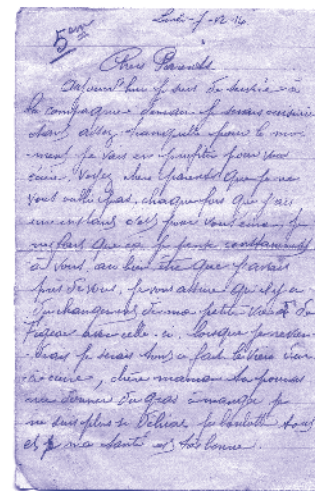 5 em
Lundi - 7 - 12 - 14
Chers Parents
Aujourd'hui je suis de service à
la compagnie je serais cuisinier
étant assez tranquille pour le mo-
ment je vais en profiter pour vous
écrire. Voyez chers parents que je ne
vous oublie pas, chaque fois que j'ai
un instant c'est pour vous
que ça je pense constamment
à vous, au bien être que j'avais
près de vous, je vous assure qu'il y a
du changement de ma petite vie de
Figeac avec celle-ci. Lorsque je revien-
drais je serais tout à fait
à cuire, chère maman tu pourras
me donner du gras à manger je
ne suis plus si délicat je boulotte tout
et ma santé est très bonne.